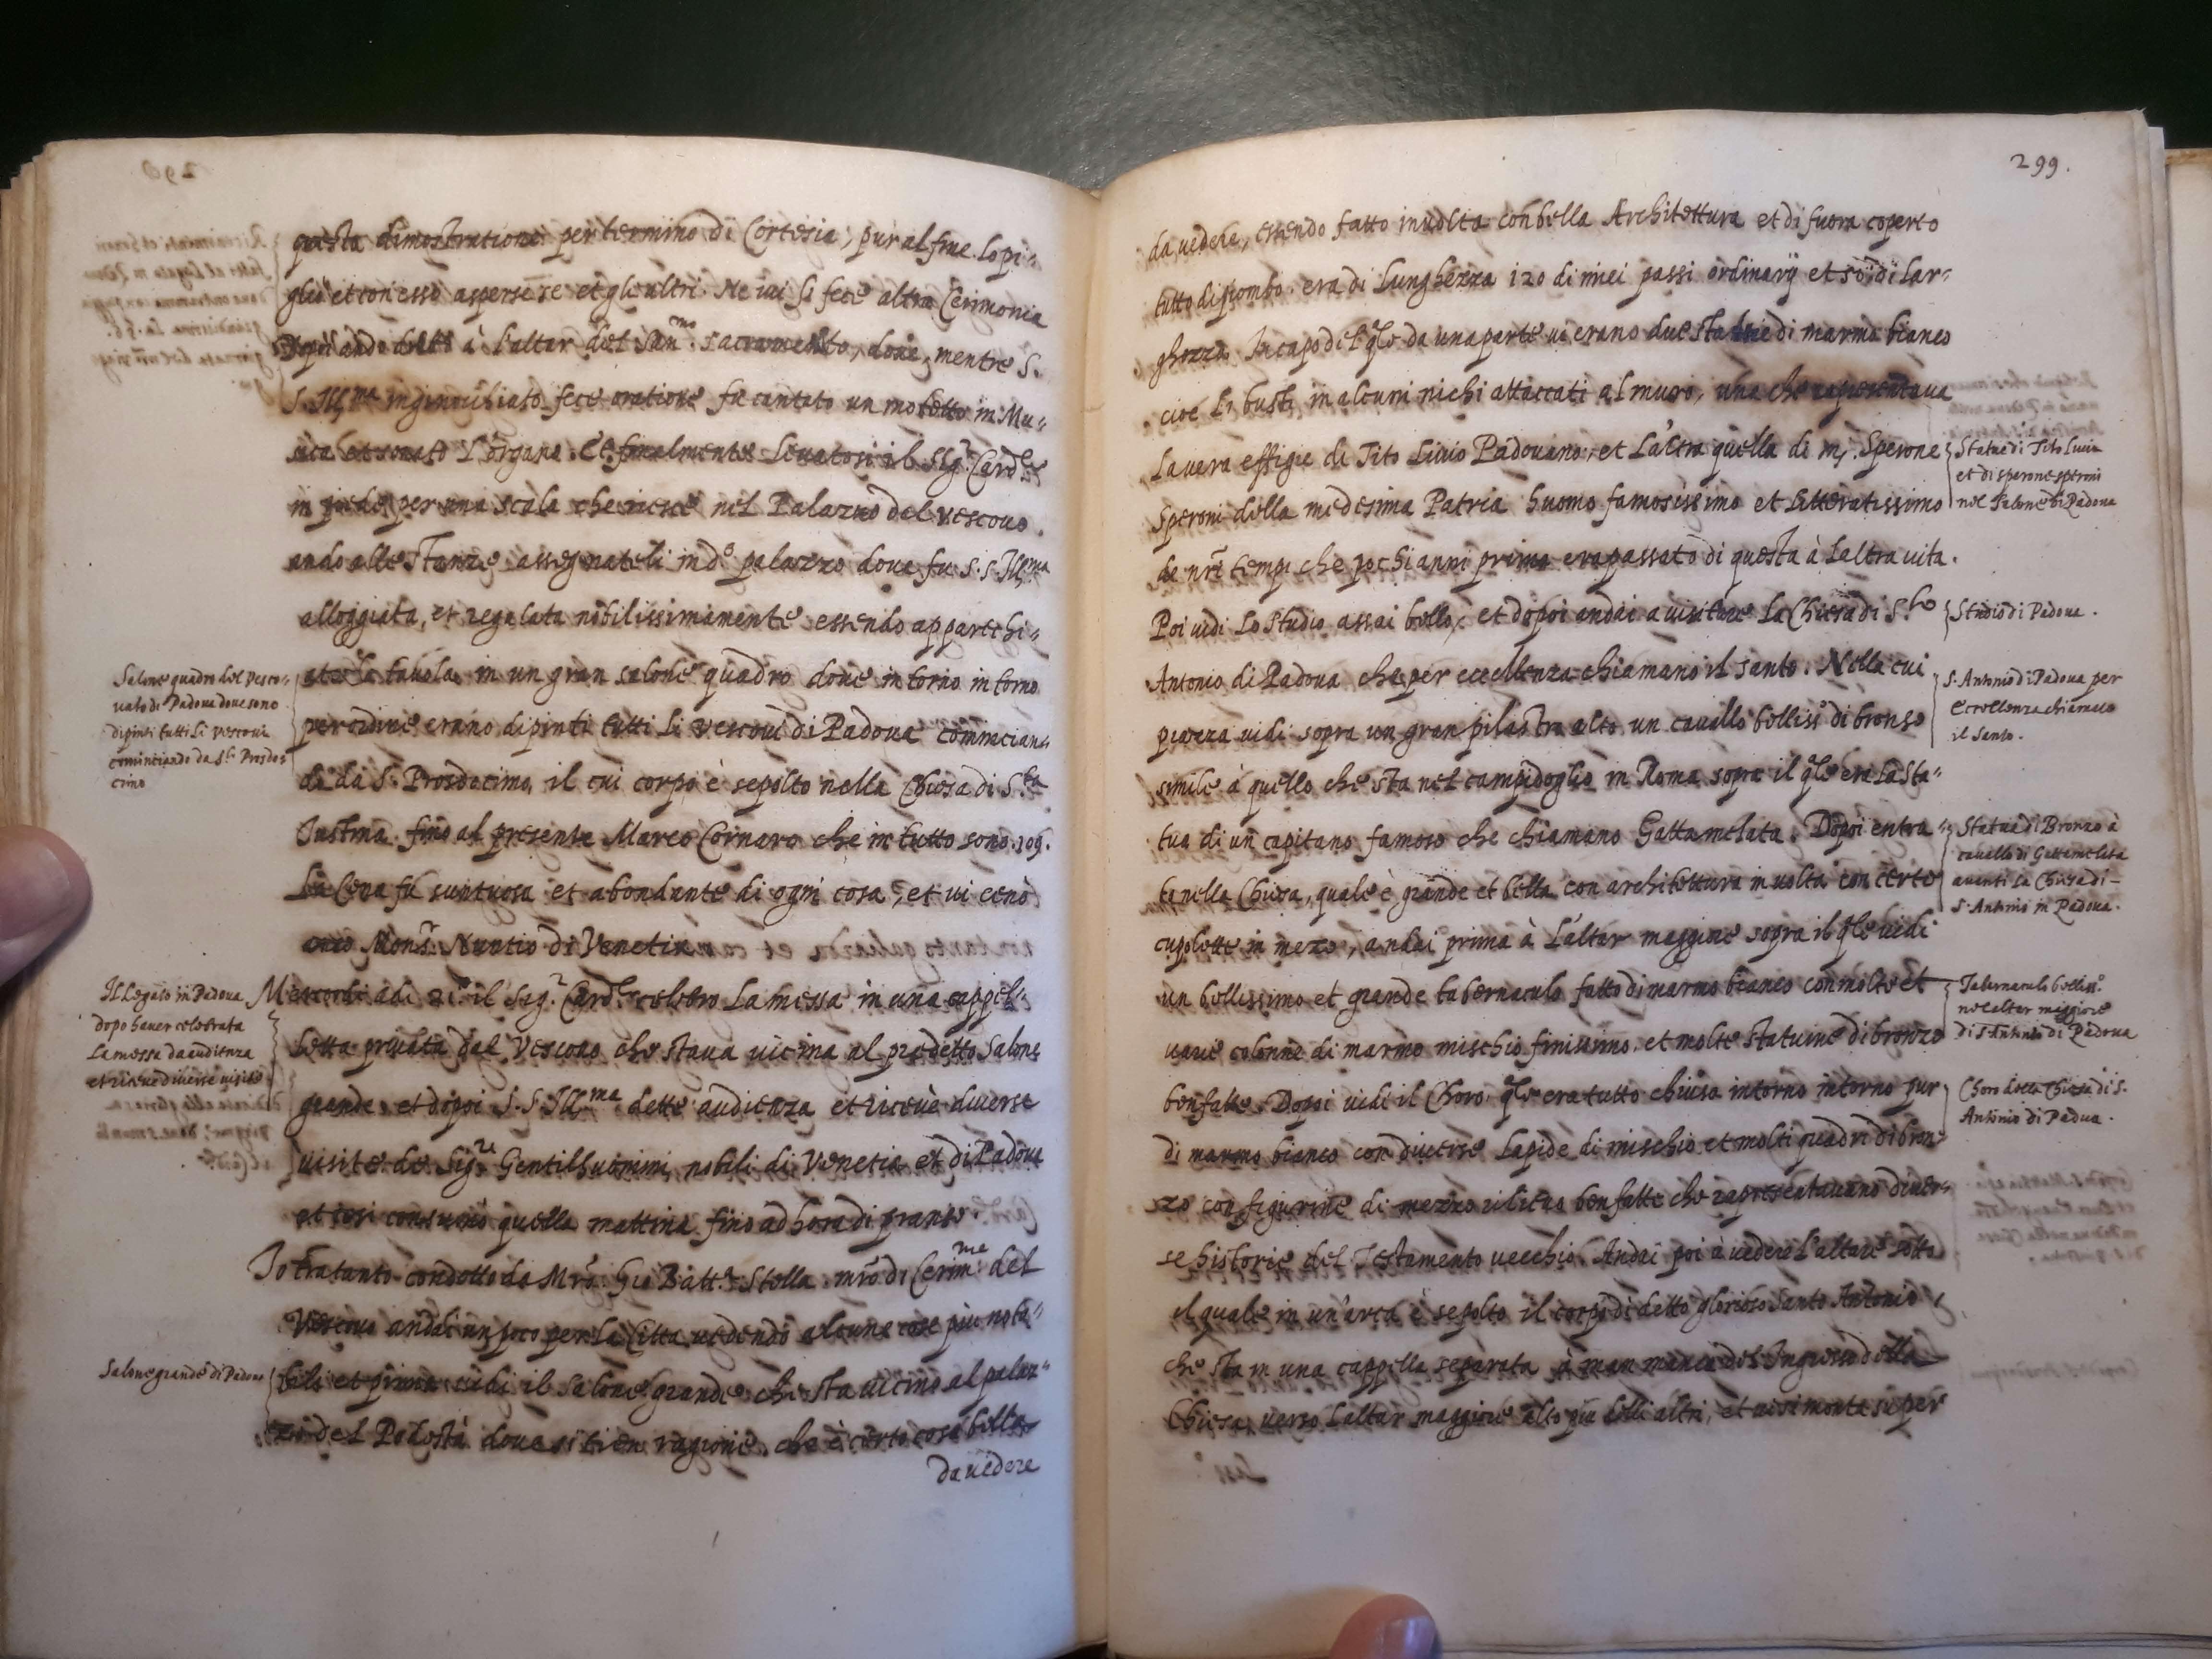 questa dimostratione per termino di Cortesia, pur al fine lo pi=
gliò et con esso asperse se et gli altri. Ne ivi si fece altra Cerimonia
Dopoi andò à l'altar del San.mo sacramento, dove, mentre S.
S. Ill.ma inginochiato fece oratione fu cantato un motetto in Mu=
sica et sonato l'organo. Et finalmente levatosi il Sig.r Card.le
in piedi per una scala che riesce nel Palazzo del vescovo
andò alle stanze assegnateli in d.o palazzo dove fu S. S. Ill.ma
alloggiata, et regalata nobilissimamente essendo apparechi=
ata la tavola in un gran salone quadro dove intorno intorno
per ordine erano dipinti tutti li vescovi di Padova comincian=
do da S. Prosdocimo, il cui corpo è sepolto nella Chiesa di S.ta
Justina fino al presente Marco Cornaro che in tutto sono 109.
La Cena fù suntuosa et abondante di ogni cosa, et vi cenò
anco Mons.r Nuntio di Venetia
Mercordi adi 21 il Sig.r Card.le celebrò la messa in una cappel=
letta privata del Vescovo che stava vicina al predetto Salone
grande et dipoi S. S. Ill.ma dette audienza et ricevè diverse
visite de Sig.ri Gentilhuomini nobili di Venetia et di Padova
et cosi consumò quella mattina fino ad hora di pranso.
Io tratanto condotto da Mro. Gio Batt.a Stella mro di Cerim.me del
Vescovo andai un poco per la Città vedendo alcune cose più nota=
bili et prima vidi il salone grande che sta vicino al palaz=
zo del Podestà dove si tien ragione, che è certo cosa bella
da vedere
Salone quadro del vesco=
vato di Padova dove sono
dipinti tutti li vescovi
cominciando da S.to Prosdo=
cimo
Il Legato in Padova
dopo haver celebrata
la messa da audienza
et riceve diverse visite
Salone grande di Padova
299.
da vedere, essendo fatto in volta con bella Architettura et di fuora coperto
tutto di piombo. era di lunghezza 120 di miei passi ordinarij et 50 di lar=
ghezza. In capo del q.le da una parte vi erano due statue di marmo bianco
cioe li busti, in alcuni nichi attaccati al muro, una che rapresentava
la vera effigie di Tito Livio Padovano, et l'altra quella di m. Sperone
Speroni della medesima Patria huomo famosissimo et litteratissimo
de nri tempi che pochi anni prima era passato di questa à l'altra vita.
Poi vidi lo studio assai bello, et dopoi andai a visitare la Chiesa di S.to
Antonio di Padova che per eccellenza chiamano il santo. Nella cui
piazza vidi sopra un gran pilastro alto un cavallo belliss.o di bronzo
simile à quello che sta nel campidoglio in Roma sopra il q.le era la sta=
tua di un capitano famoso che chiamano Gattamelata. Dopoi entra=
to nella Chiesa, quale è grande et bella con architettura in volta con certe
cupolette in mezo, andai prima à l'altar maggiore sopra il q.le vidi
un bellissimo et grande tabernaculo fatto di marmo bianco con molte et
varie colonne di marmo mischio finissimo, et molte statuine di bronzo
ben fatte. Dopoi vidi il Choro q.le era tutto chiuso intorno intorno pur
di marmo bianco con diverse lapide di mischio et molti quadri di bron=
zo con figurine di mezzo rilievo ben fatte che rapresentavano diver=
se historie del Testamento vecchio. Andai poi à vedere l'altare sotto
il quale in un'arca è sepolto il corpo di detto glorioso Santo Antonio,
che sta in una cappella separata à man manca del Ingresso della
Chiesa verso l'altar maggiore alto più delli altri, et vi si monta su per
Statue di Tito Livio
et di sperone speroni
nel salone di Padova
Studio di Padova.
S. Antonio di Padova per
Eccellenza chiamato
il santo.
Statua di Bronzo à
cavallo di Gattamelata
avanti la Chiesa di
S. Antonio in Padova.
Tabernaculo belliss.o
nel altar maggiore
di S Antonio di Padova
Choro della Chiesa di S.
Antonio di Padua.